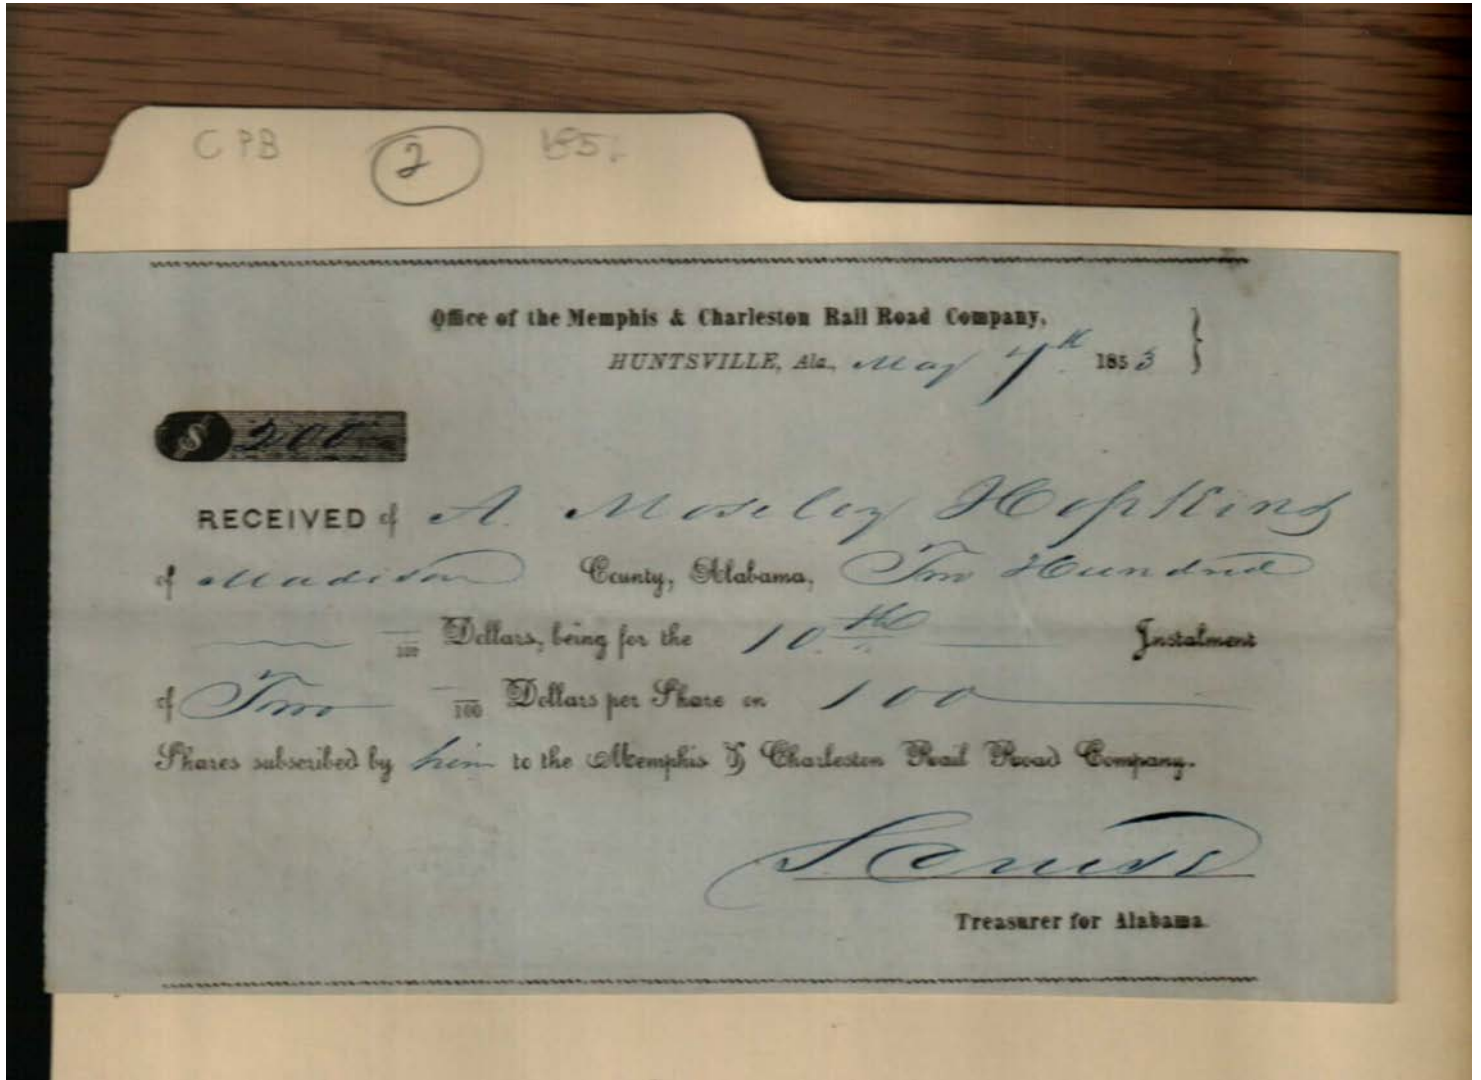 CPB 2 185
Office of the Memphis & Charleston Rail Road Company,
HUNTSVILLE, Ala., May 7th 1853
$ 200
RECEIVED of A. Moseley Hopkins
of Madison County, Alabama, Two Hundred
/100 Dollars, being for the 10th Instalment
of Two /100 Dollars per Share on 100
Shares subscribed by him to the Memphis & Charleston Rail Road Company.
S. Cruse
Treasurer for Alabama.